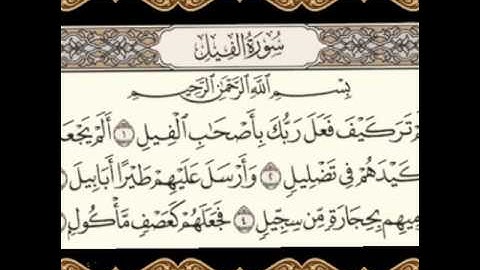 سُورَةُ الفِيلِ
بِسْمِ اللَّهِ الرَّحْمَٰنِ الرَّحِيمِ
تَرَ كَيْفَ فَعَلَ رَبُّكَ بِأَصْحَابِ الْفِيلِ ١ أَلَمْ يَجْعَ
كَيْدَهُمْ فِي تَضْلِيلٍ ٢ وَأَرْسَلَ عَلَيْهِمْ طَيْرًا أَبَابِيلَ
مِيهِم بِحِجَارَةٍ مِّن سِجِّيلٍ ٤ فَجَعَلَهُمْ كَعَصْفٍ مَّأْكُولٍ